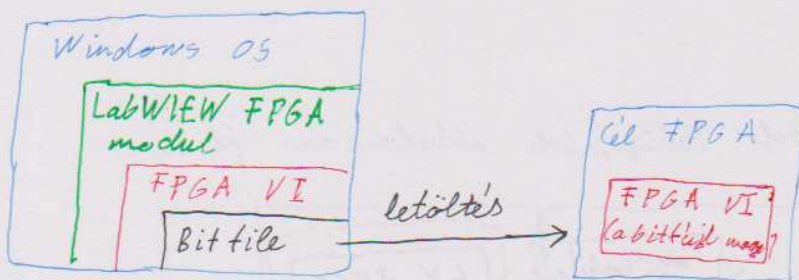 Windows OS
LabWIEW FPGA
modul
FPGA VI
Bit file
letöltés
Cél FPGA
FPGA VI
(a bitfájl